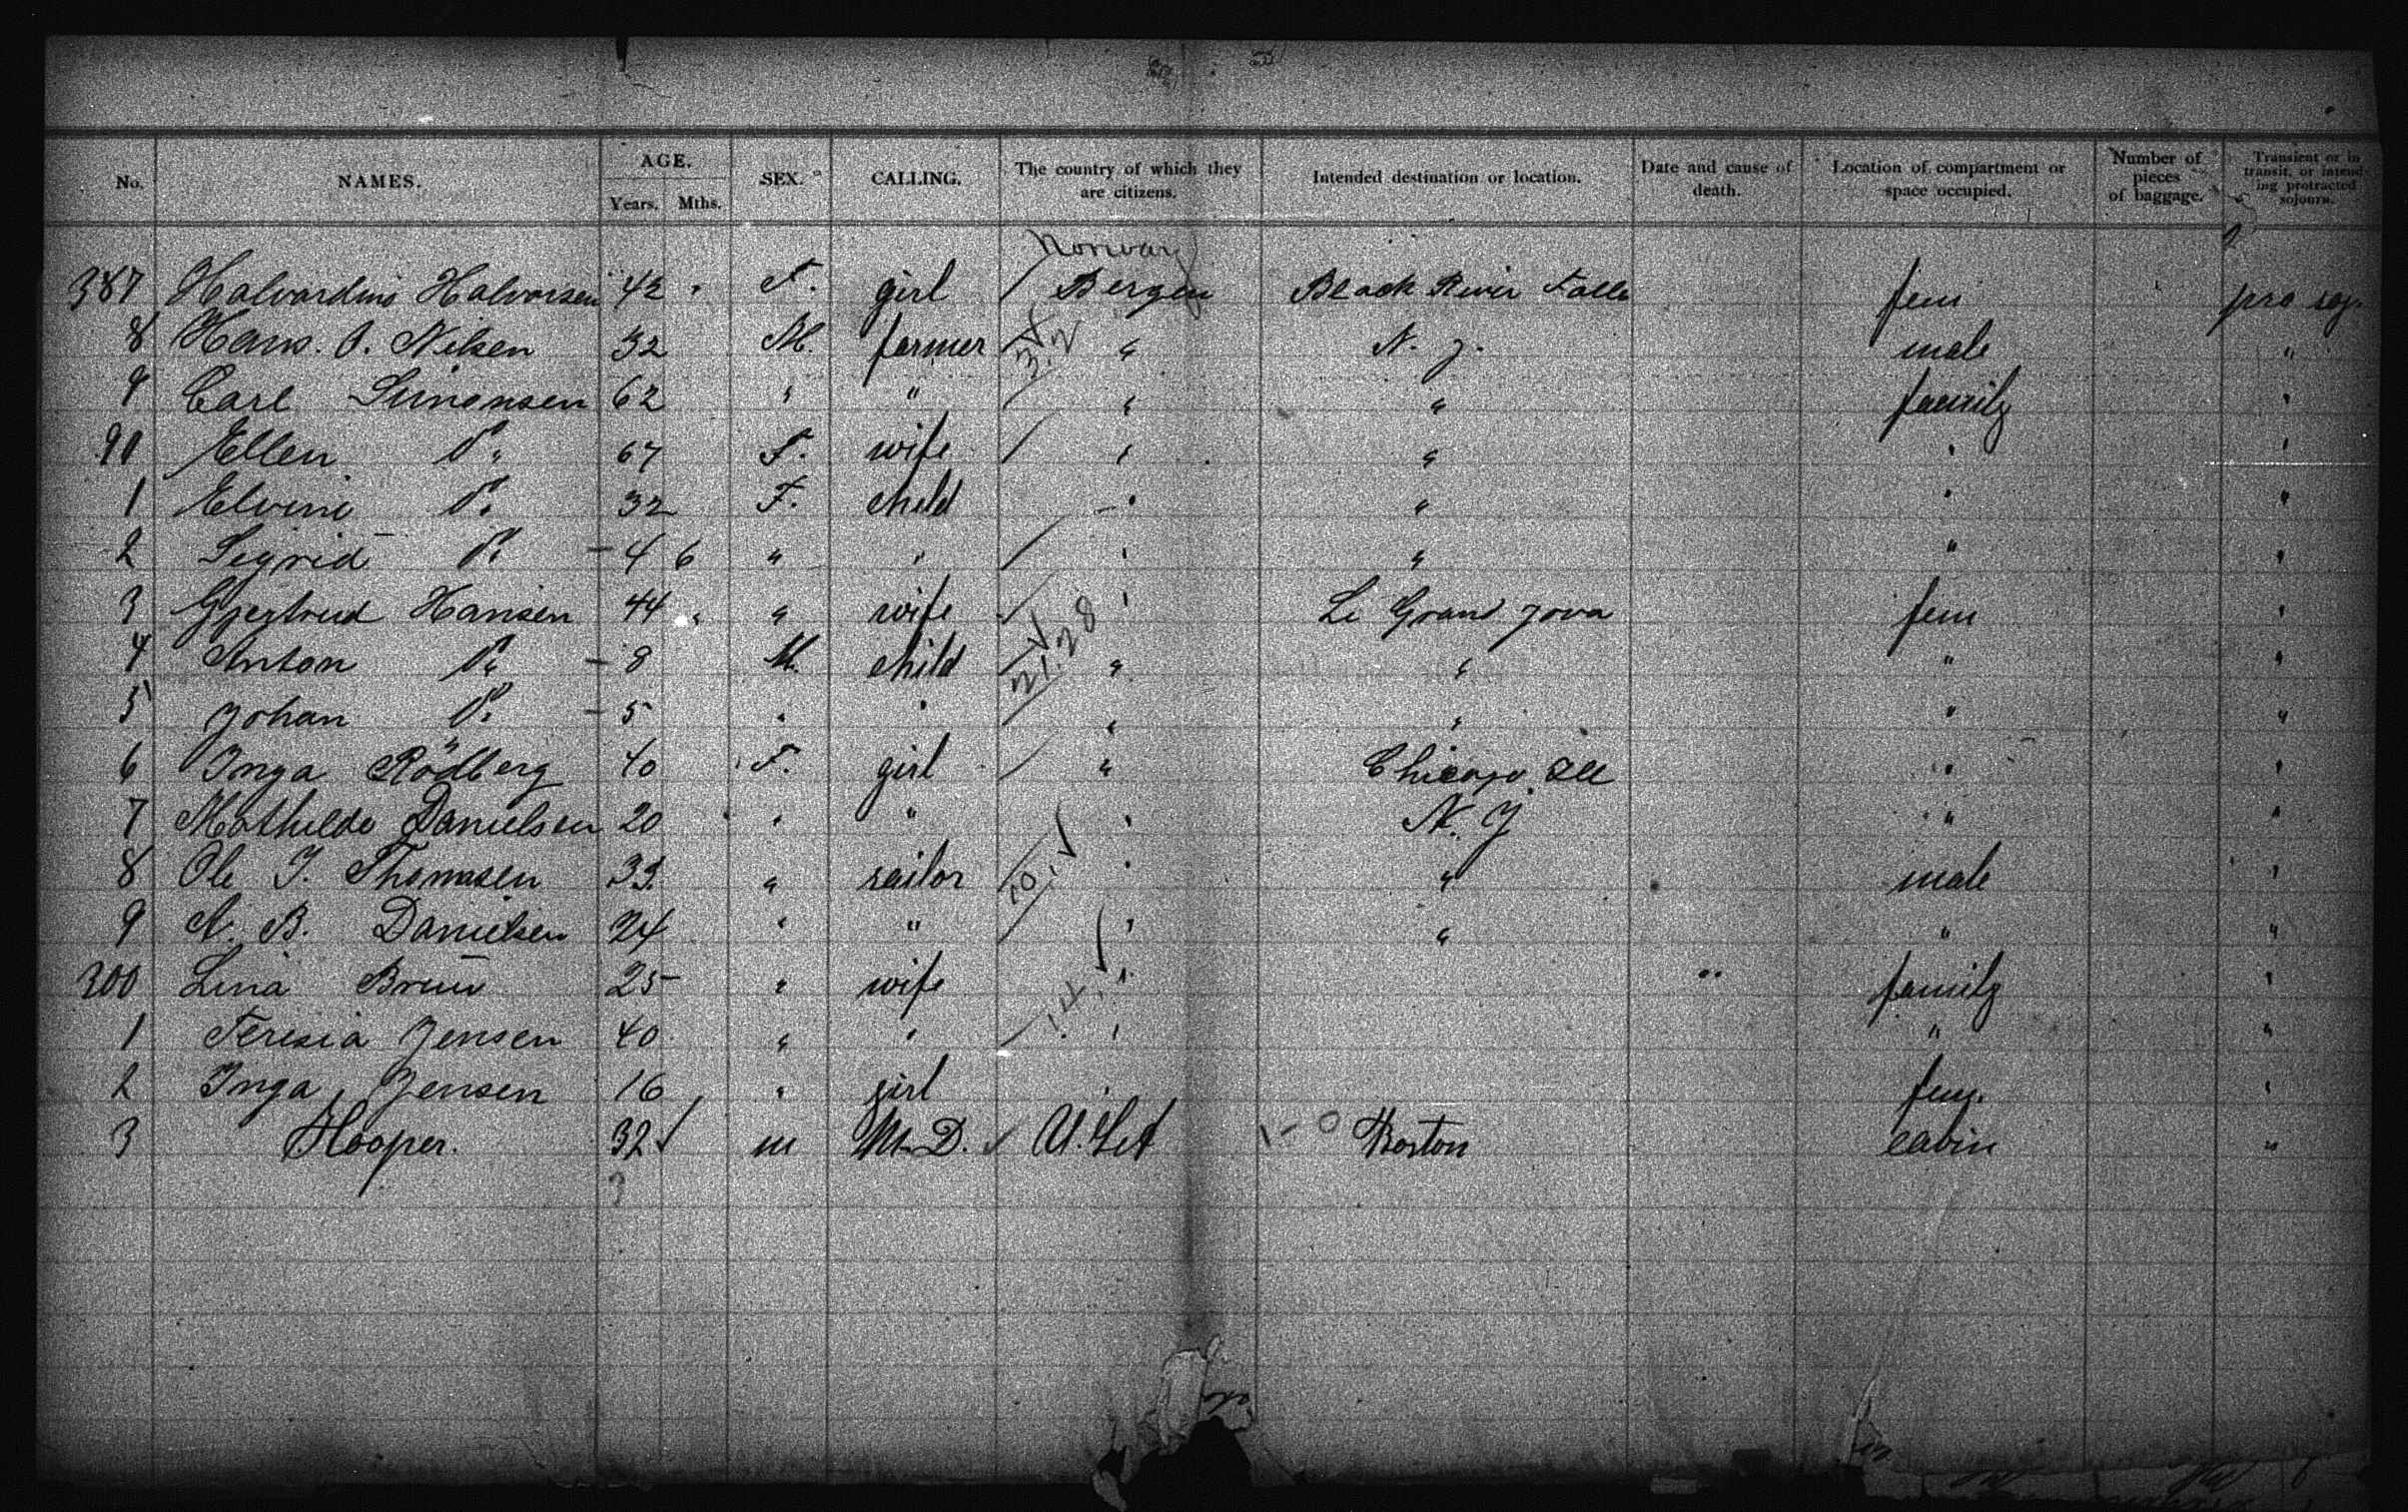 No. NAMES. AGE. Years. Mths. SEX. CALLING. The country of which they are citizens. Intended destination or location. Date and cause of death. Location of compartment or space occupied. Number of pieces of baggage. Transient or in transit, or intending protracted sojourn.
Norway
387 Halvardins Halvorsen 42 " F. girl / Bergen Black River Falls fem pro soj.
8 Hans. O. Nilsen 32 M. farmer " N. J. male "
9 Carl Simonsen 62 " " / " " family "
90 Ellen Do 67 F. wife / " " " "
1 Elvine Do 32 F. child " " " "
2 Sigrid Do - 4 6 " " / " " " "
3 Gjertrud Hansen 44 " " wife / " Le Grand Jova fem "
4 Anton Do - 8 M. child / 21.28 " " " "
5 Johan Do - 5 " " / " " " "
6 Inga Rödberg 40 F. girl / " Chicago Ill " "
7 Mathilde Danielsen 20 " " " N. J " "
8 Ole J. Thomasen 33 " sailor / 10. " " male "
9 A. B. Danielsen 24 " " / " " " "
300 Lina Bruu 25 " wife 14. " family "
1 Teresia Jensen 40 " " / " " "
2 Inga Jensen 16 " girl " fem. "
3 Hooper. 32 m M. D. U. St A 1 - 0 Boston cabin "